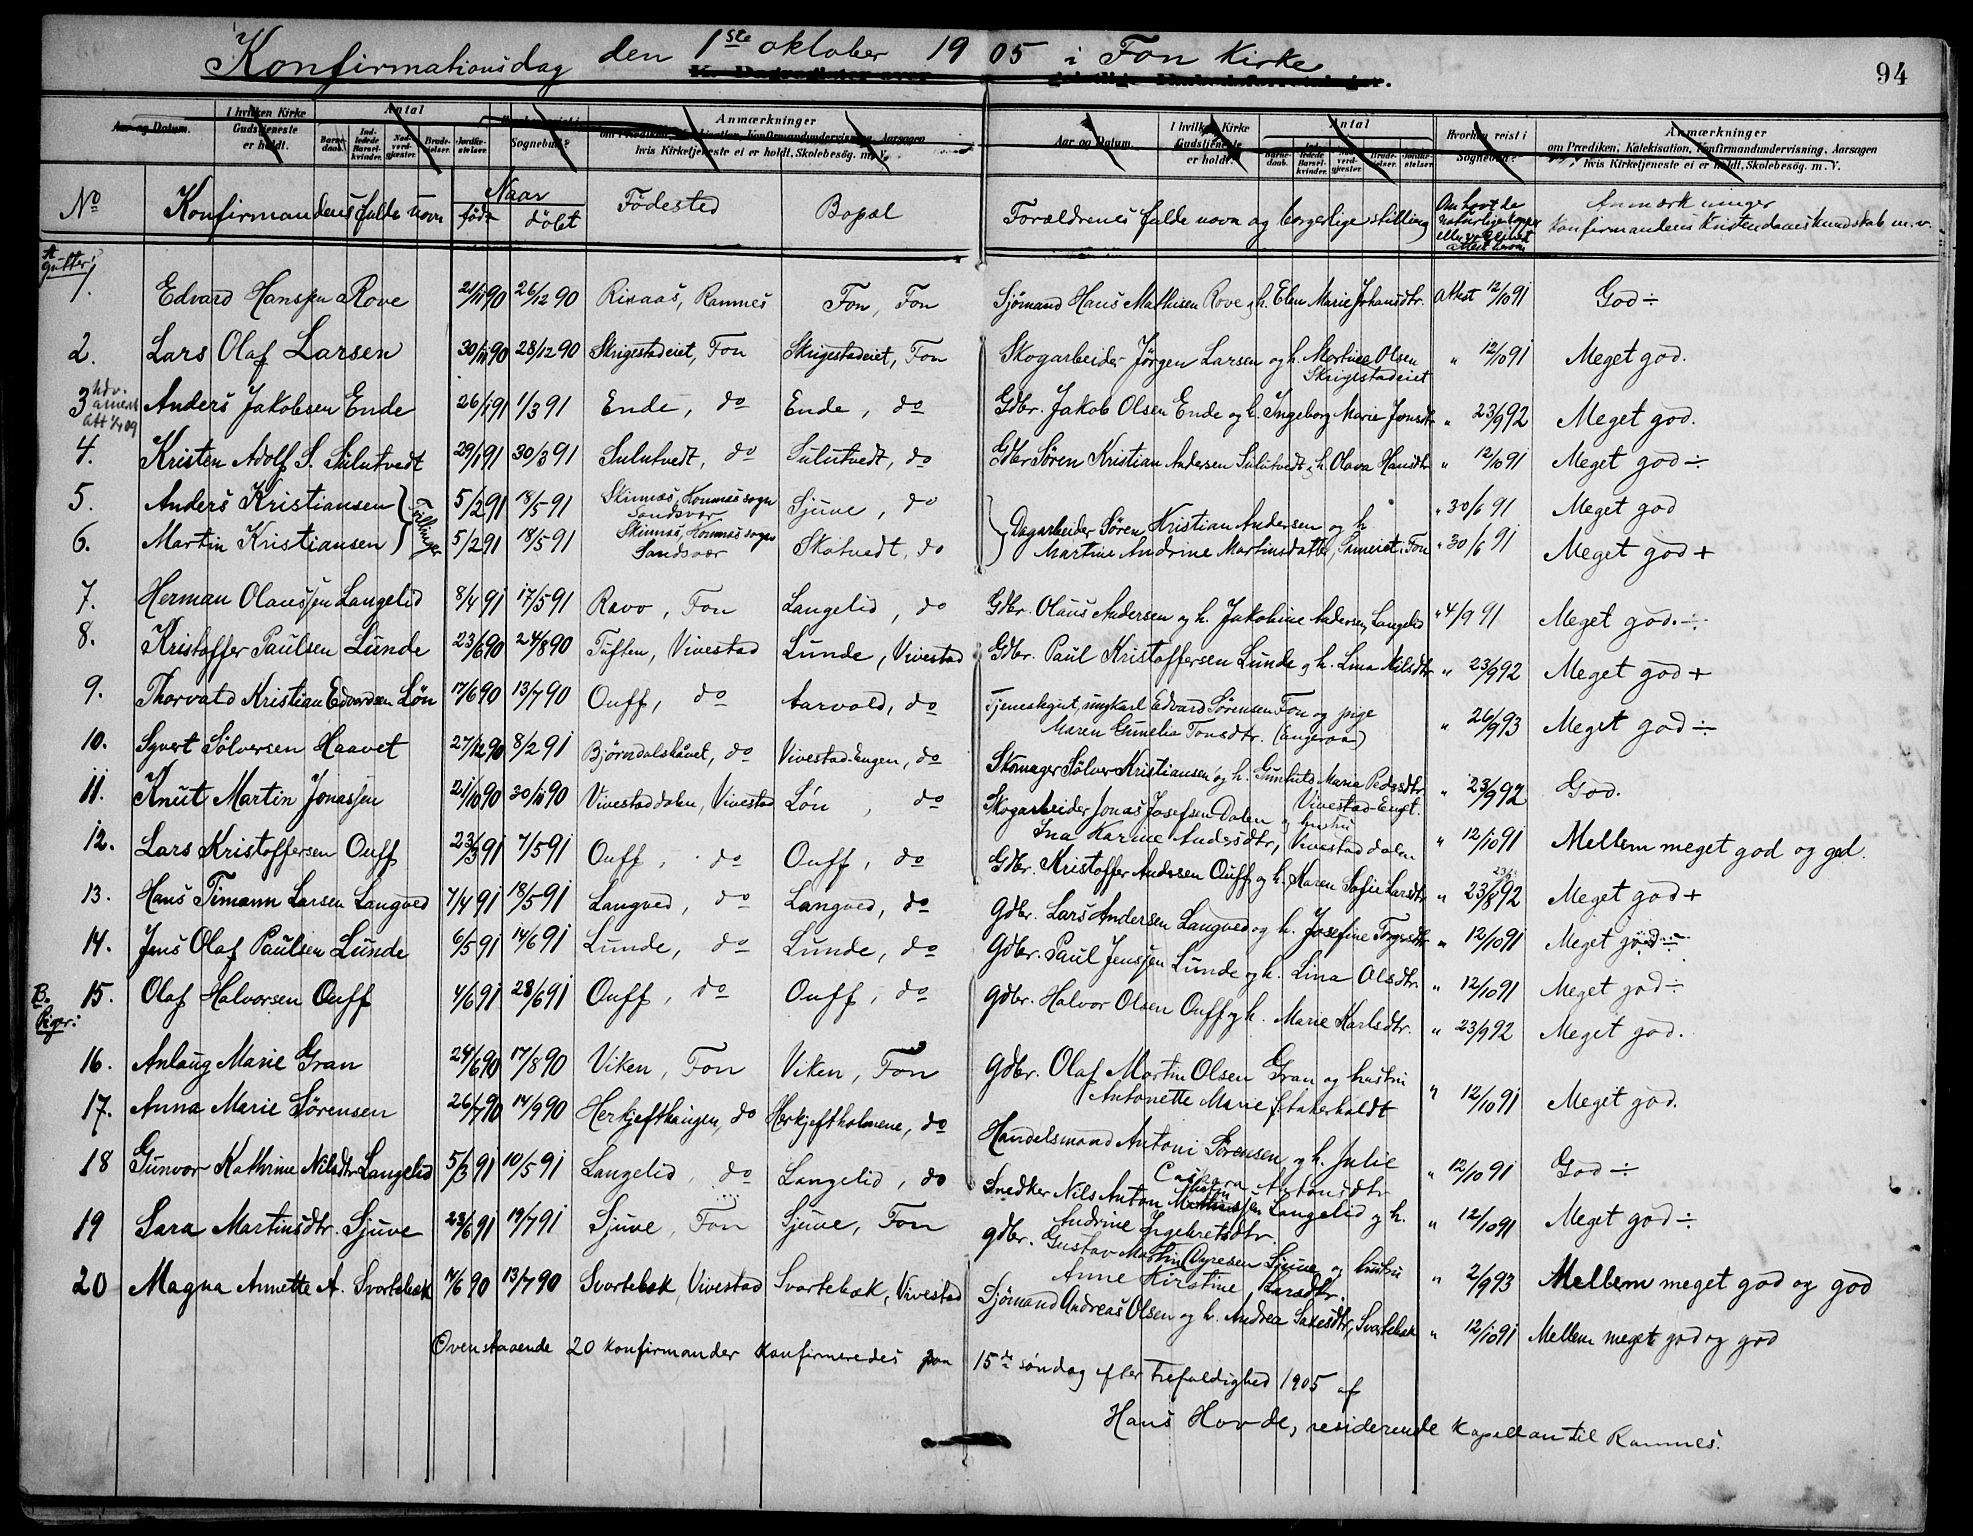 Konfirmationsdag den 1ste oktober 1905 i Fon Kirke
94
K. Dagregister over geistlige Embedsforretninger.
Aar og Datum. I hvilken Kirke Gudstjeneste er holdt. Antal Barnedaab. Indledede Barselkvinder. Nadverdgjester. Brudevielser. Jordfæstelser. Sognebud? Anmærkninger om Prædiken, Katekisation, Konfirmandundervisning, Aarsagen hvis Kirketjeneste ei er holdt, Skolebesøg. m. V.
Aar og Datum. I hvilken Kirke Gudstjeneste er holdt. Antal Barnedaab. Indledede Barselkvinder. Nadverdgjester. Brudevielser. Jordfæstelser. Hvorhen reist i Sognebud? Anmærkninger om Prædiken, Katekisation, Konfirmandundervisning, Aarsagen hvis Kirketjeneste ei er holdt, Skolebesøg. m. V.
No Konfirmandens fulde navn Naar født døbt Fødested Bopæl Forældrenes fulde navn og borgerlige stilling Om havt de naturlige kopper eller vaccineret attest herom Anmærkninger Konfirmandens Kristendomskundskab m. v.
A. Gutter:
1. Edvard Hanssen Rove 21/11 90 26/12 90 Rivaas, Ramnes Fon, Fon Sjömand Hans Mathisen Rove og h. Elen Marie Johansdtr. Attest 12/10 91 God ÷
2. Lars Olaf Larsen 30/11 90 28/12 90 Skrigestadeiet, Fon Skrigestadeiet, Fon Skogarbeider Jörgen Larsen og h. Martine Olsen Skrigestadeiet " 12/10 91 Meget god.
3 Anders Jakobsen Ende 26/1 91 1/3 91 Ende, do Ende, do Gdbr. Jakob Olsen Ende og h. Ingeborg Marie Jonsdtr " 23/9 92 Meget god.
4. Kristen Adolf S. Sulutvedt 29/1 91 30/3 91 Sulutvedt, do Sulutvedt, do Gdbr Søren Kristian Andersen Sulutvedt & h. Olava Hansdtr " 12/10 91 Meget god ÷
5. Anders Kristiansen } Tvillinger 5/2 91 18/5 91 Skinnæs, Hommes sogn Sandsvær Sjuve, do " 30/6 91 Meget god
6. Martin Kristiansen } 5/2 91 18/5 91 Skinnæs, Hommes sogn Sandsvær Skotvedt, do } Dagarbeider Søren Kristian Andersen og h. Martine Andrine Martinsdatter, Fon " 30/6 91 Meget god +
7. Herman Olaussen Langelid 8/4 91 17/5 91 Ravo, Fon Langelid, do Gdbr. Olaus Andersen og h. Jakobine Andersen, Langelid " 4/9 91 Meget god. ÷
8. Kristoffer Paulsen Lunde 23/6 90 24/8 90 Tuften, Vivestad Lunde, Vivestad Gdbr. Paul Kristoffersen Lunde og h. Lina Nilsdtr " 23/9 92 Meget god +
9. Thorvald Kristian Edvardsen Lön 17/6 90 13/7 90 Ouff, do Aarvold, do Tjenestegut, ungkarl Edvard Sørensen Fon og pige Maren Gunelia Tonsdtr. (Angeraa) " 26/9 93 Meget god ÷
10. Syvert Sölversen Haavet 27/12 90 8/2 91 Björndalshåvet, do Vivestad-Engen, do Skomager Sölver Kristiansen og h. Gunhild Marie Pedersdtr Vivestad-Engt. " 23/9 92 God.
11. Knut Martin Jonassen 21/10 90 30/11 90 Vivestaddalen, Vivestad Lön, do Skogarbeider Jonas Josefsen Dalen og hustru Ina Karine Andersdtr, Vivestaddalen " 12/10 91 Mellem meget god og god.
12. Lars Kristoffersen Ouff 23/3 91 7/5 91 Ouff, do Ouff, do Gdbr. Kristoffer Andersen Ouff og h. Karen Sofie Larsdtr " 23/8 92 Meget god +
13. Hans Timann Larsen Langved 7/4 91 18/5 91 Langved, do Langved, do Gdbr. Lars Andersen Langved og h. Josefine Torgersdtr " 12/10 91 Meget god ÷
14. Jens Olaf Paulsen Lunde 6/5 91 14/6 91 Lunde, do Lunde, do Gdbr. Paul Jenssen Lunde og h. Lina Olsdtr. " 12/10 91 Meget god ÷
15. Olaf Halvorsen Ouff 4/6 91 28/6 91 Ouff, do Ouff, do Gdbr. Halvor Olsen Ouff og h. Marie Karlsdtr. " 23/9 92 Meget god.
B. Piger:
16. Anlaug Marie Gran 24/6 90 17/8 90 Viken, Fon Viken, Fon Gdbr. Olaf Martin Olsen Gran og hustru Antonette Marie Stakerholdt " 12/10 91 Meget god.
17. Anna Marie Sørensen 26/7 90 14/9 90 Herkjefthaugen, do Herkjeftholmene, do Handelsmand Antoni Sørensen og h. Julie Caspara Antonsdtr " 12/10 91 God ÷
18 Gunvor Kathrine Nilsdtr Langelid 5/3 91 10/5 91 Langelid, do Langelid, do Snedker Nils Anton Langelid og h. Andrine Ingebretsdtr. " 12/10 91 Meget god ÷
19 Sara Martinsdtr. Sjuve 23/6 91 19/7 91 Sjuve, Fon Sjuve, Fon Gdbr. Gustav Martin Syvresen Sjuve og hustru Anne Kirstine Larsdtr. " 2/9 93 Mellem meget god og god
20 Magna Annette A. Svartebæk 14/6 90 13/7 90 Svartebæk, Vivestad Svartebæk, Vivestad Sjömand Andreas Olsen og h. Andrea Saxesdtr, Svartebæk " 12/10 91 Mellem meget god og god
Ovenstaaende 20 konfirmander konfirmeredes paa 15de søndag efter trefoldighed 1905 af
Hans Hovde, residerende kapellan til Ramnes.